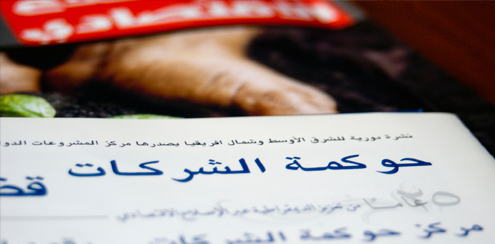 الاقتصادي
نشرة دورية للشرق الأوسط وشمال افريقيا يصدرها مركز المشروعات الدو
حوكمة الشركات قض
٢٥ عاما من تعزيز الديمقراطية عبر الإصلاح الاقتصادي
مركز حوكمة الشركات